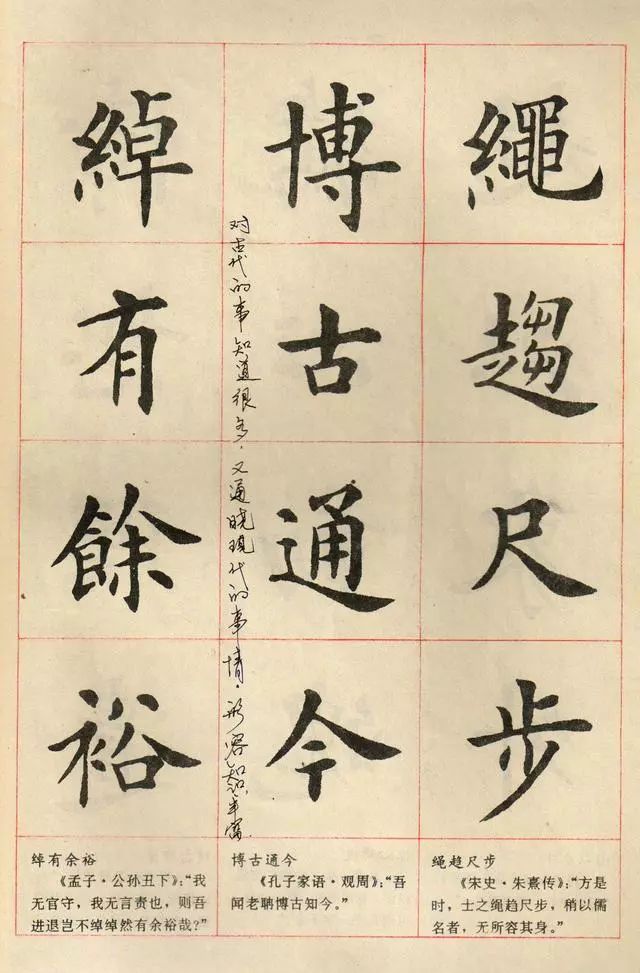 繩趨尺步
博古通今
对古代的事知道很多，又通晓现代的事情。形容知识丰富
綽有餘裕
绳趋尺步
《宋史·朱熹传》：“方是
时，士之绳趋尺步，稍以儒
名者，无所容其身。”
博古通今
《孔子家语·观周》：“吾
闻老聃博古知今。”
绰有余裕
《孟子·公孙丑下》：“我
无官守，我无言责也，则吾
进退岂不绰绰然有余裕哉？”